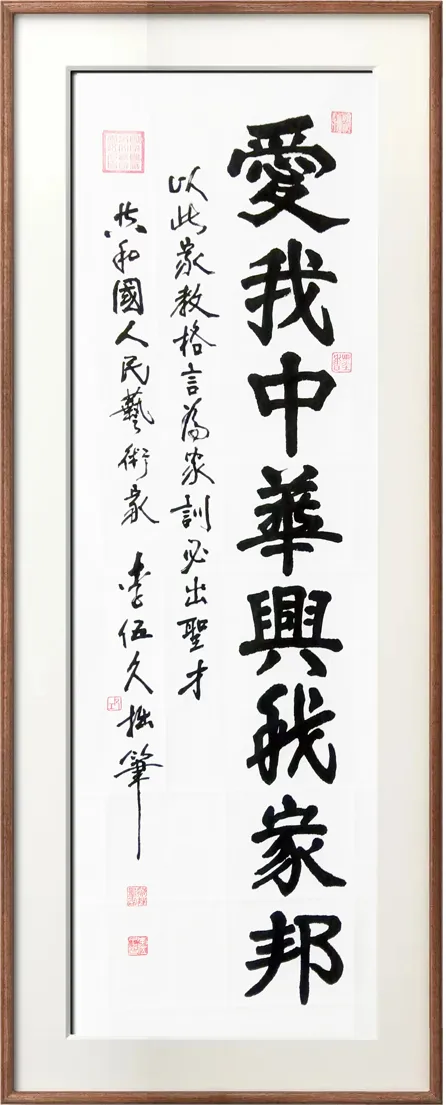 愛我中華興我家邦
以此家教格言為家訓必出聖才
共和國人民藝術家 李伍久拙筆